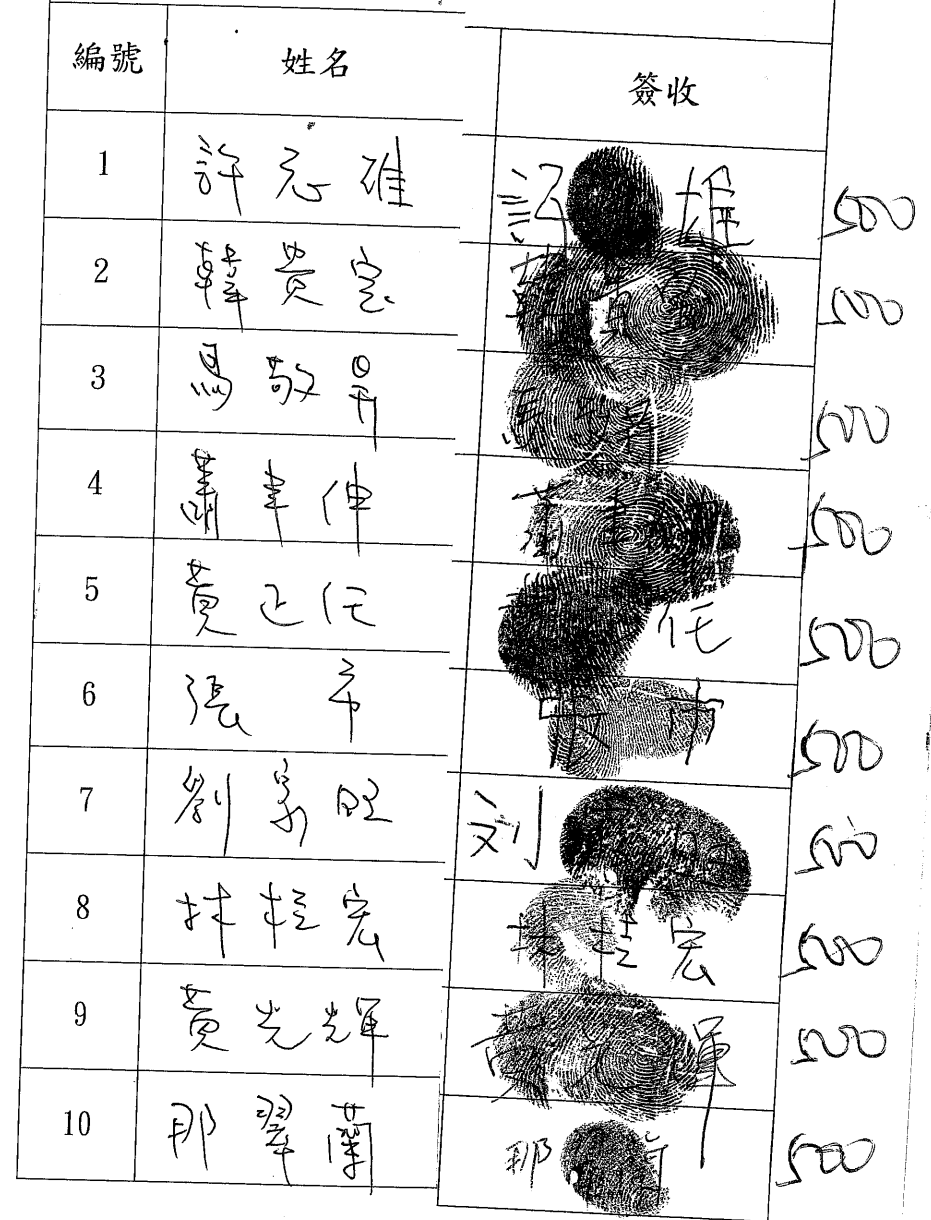 編號 姓名 簽收
1 許志雄 雄 500
2 韓貴宝 500
3 馬敬昇 500
4 蕭聿伸 500
5 黃正任 任 500
6 張 市 市 500
7 劉 旺 刘 500
8 林桂宏 林桂宏 500
9 黃光輝 黃 500
10 那翠蘭 那 500